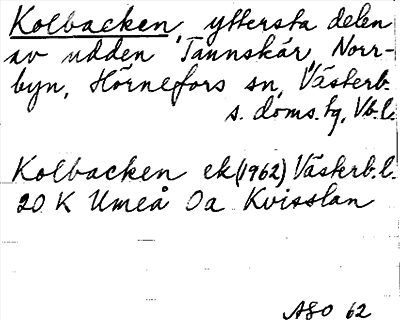 Kolbacken, yttersta delen
av udden Tannskär, Norr-
byn, Hörnefors sn, Västerb.
s. doms. tg, Vb.l.
Kolbacken ek (1962) Västerb.l.
20 K Umeå 0a Kvisslan
ASO 62